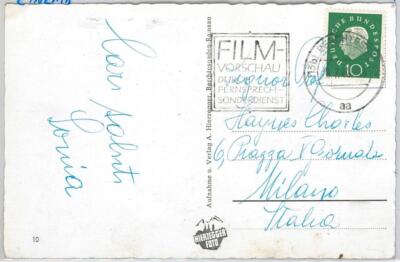 CINEMA
FILM-
VORSCHAU
DURCH
FERNSPRECH-
SONDERDIENST
DEUTSCHE BUNDESPOST
10
aa
Cari saluti
Sonia
Haynes Charles
6, Piazza Giornate
Milano
Italia
Aufnahme u. Verlag A. Hierzegger, Berchtesgaden-Ramsau
HIERZEGGER
FOTO
10